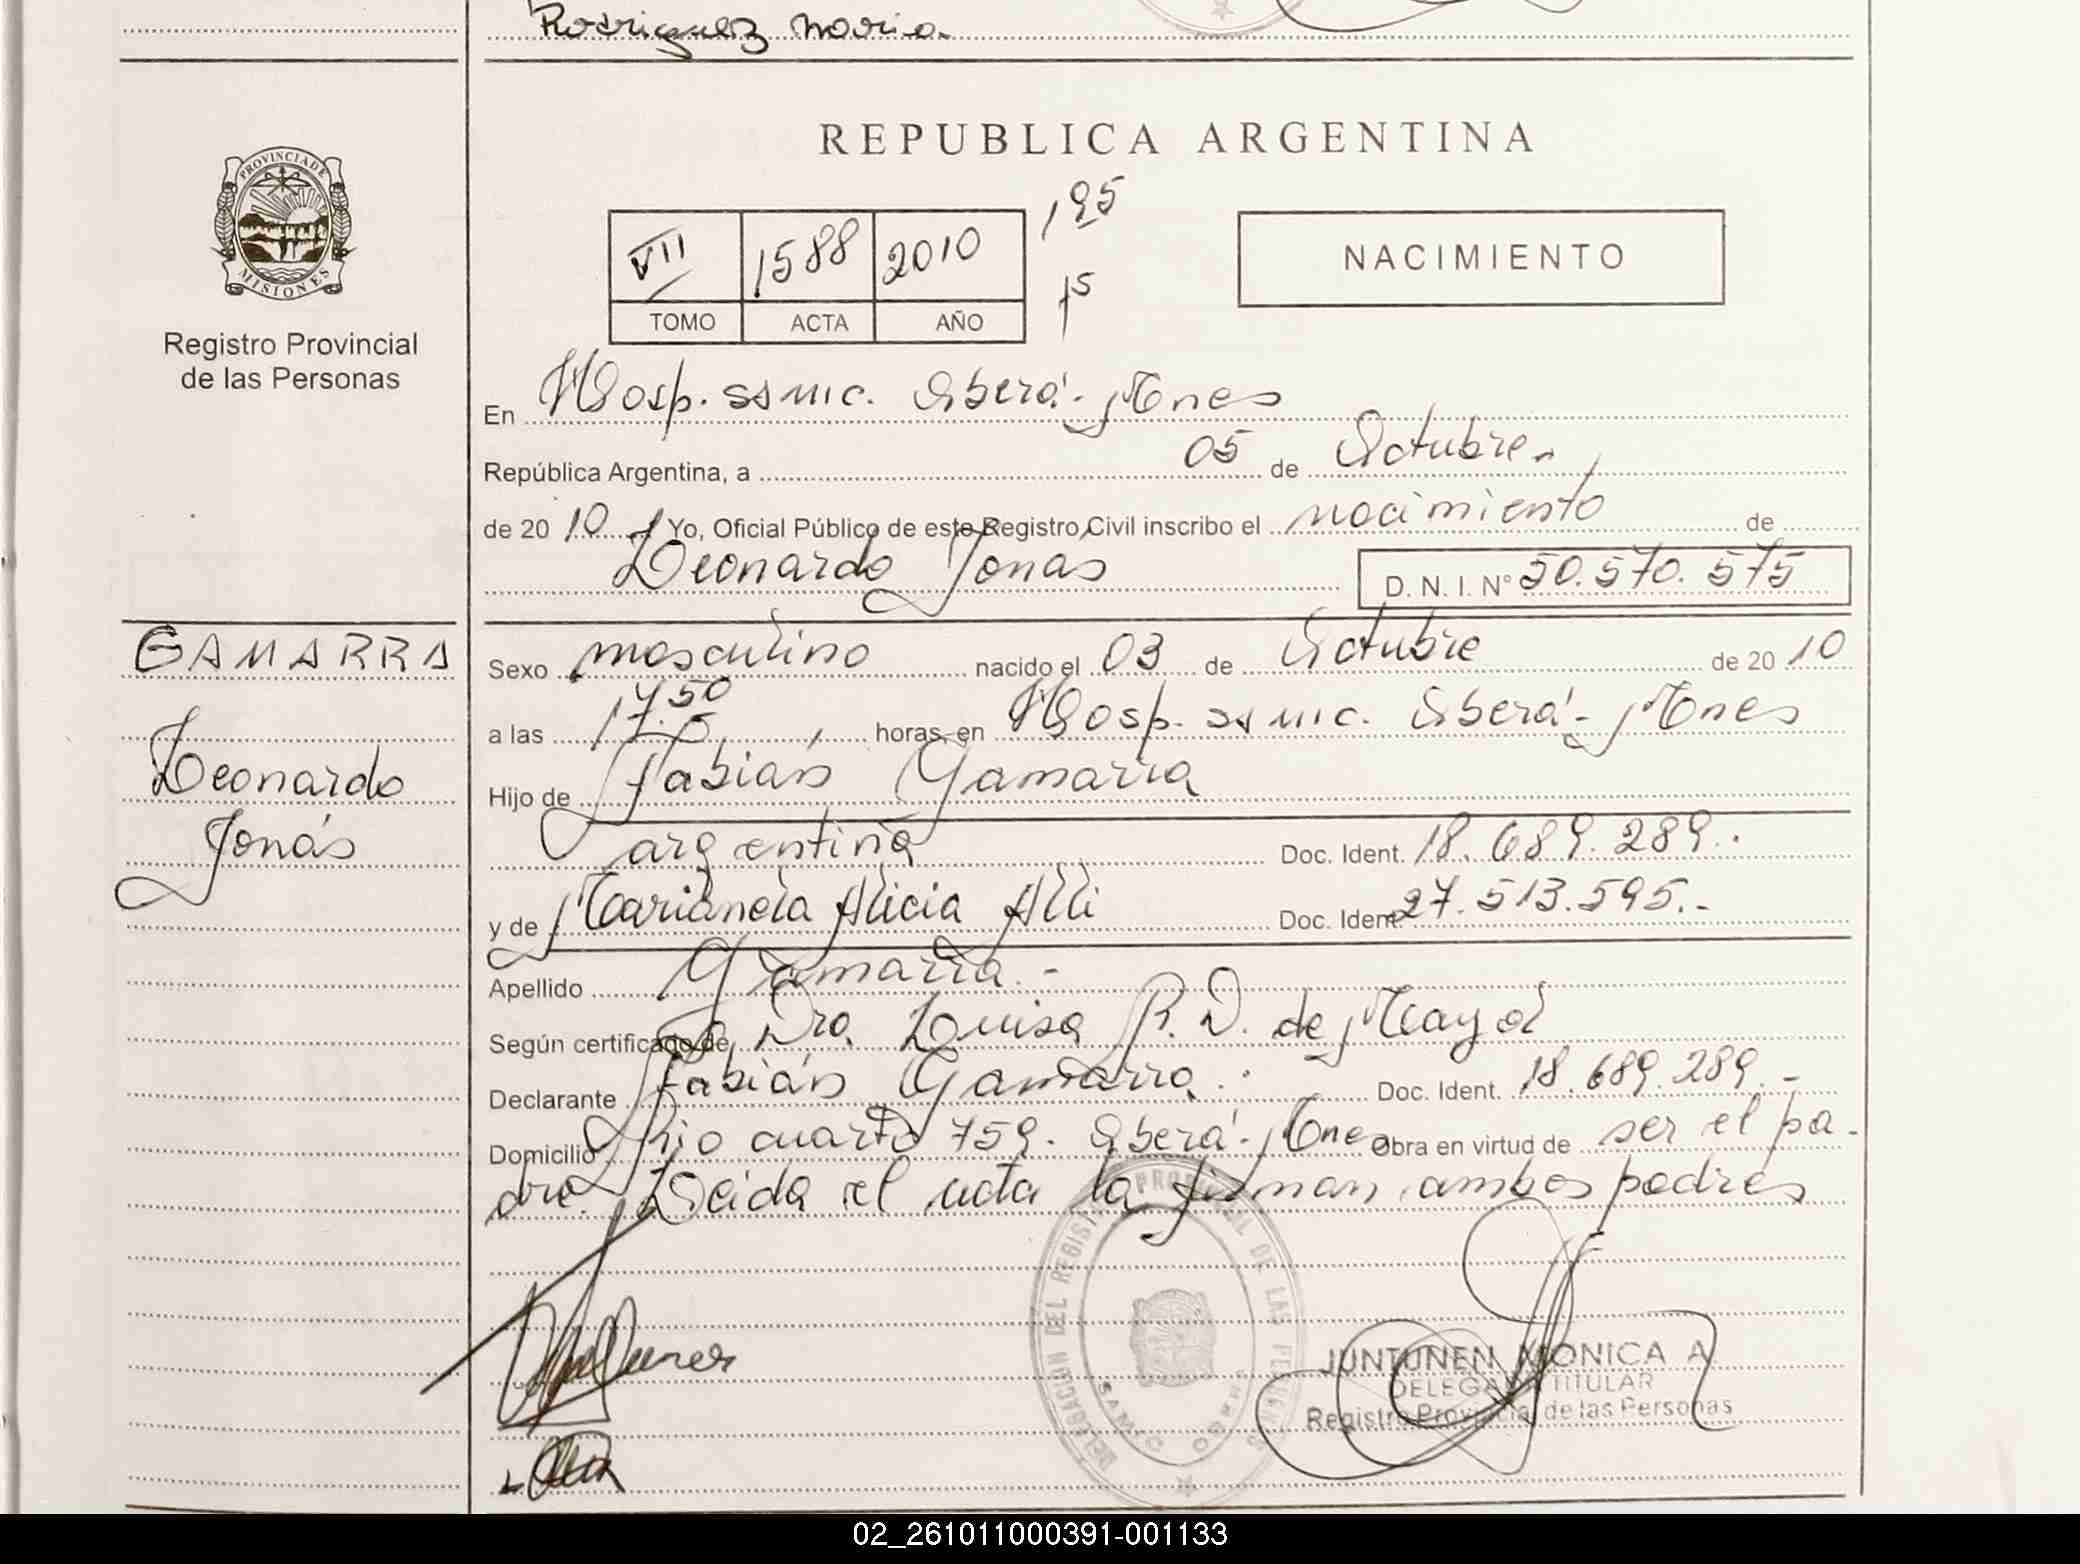 Rodriguez Maria.
PROVINCIA DE
MISIONES
Registro Provincial
de las Personas
REPUBLICA ARGENTINA
195
15
VII 1588 2010
TOMO ACTA AÑO
NACIMIENTO
En Hosp. SSMIC. Oberá - Mnes
República Argentina, a 05 de Octubre.
de 20 10 Yo, Oficial Público de este Registro Civil inscribo el nacimiento de
Leonardo Jonas
D. N. I. N° 50.570.575
GAMARRA
Leonardo
Jonás
Sexo masculino nacido el 03 de Octubre de 20 10
a las 17.50 horas, en Hosp. SSMIC. Oberá - Mnes
Hijo de Fabián Gamarra
argentina Doc. Ident. 18.689.289.
y de Marianela Alicia Alli Doc. Ident. 27.513.595.-
Apellido Gamarra.-
Según certificado de Dra Luisa R. D. de Mayol
Declarante Fabián Gamarra. Doc. Ident. 18.689.289.-
Domicilio Rio cuarto 759. Oberá - Mnes Obra en virtud de ser el pa-
dre. Leida el acta la firman ambos padres
DELEGACION DEL REGISTRO PROVINCIAL DE LAS PERSONAS
SAMIC OBERA
JUNTUNEN MONICA A
DELEGADA TITULAR
Registro Provincial de las Personas
02_261011000391-001133